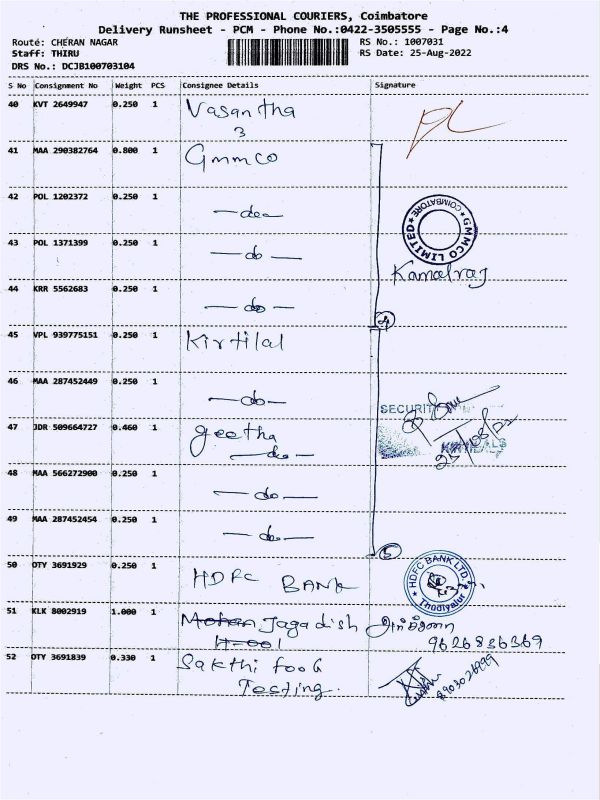 THE PROFESSIONAL COURIERS, Coimbatore
Delivery Runsheet - PCM - Phone No.:0422-3505555 - Page No.:4
Route: CHERAN NAGAR RS No.: 1007031
Staff: THIRU RS Date: 25-Aug-2022
DRS No.: DCJB100703104
S No Consignment No Weight PCS Consignee Details Signature
40 KVT 2649947 0.250 1 Vasantha
3
41 MAA 290382764 0.800 1 Gmmco
42 POL 1202372 0.250 1 —do—
GMMCO LIMITED COIMBATORE
43 POL 1371399 0.250 1 —do—
Kamalraj
44 KRR 5562683 0.250 1 —do—
4
45 VPL 939775151 0.250 1 Kirtilal
46 MAA 287452449 0.250 1 —do—
SECURITY
47 JDR 509664727 0.460 1 geetha
—do—
48 MAA 566272900 0.250 1 —do—
49 MAA 287452454 0.250 1 —do—
5
50 OTY 3691929 0.250 1 HDFC BANK
HDFC BANK LTD. Thudiyalur
51 KLK 8002919 1.000 1 Mohan Jagadish
9626836369
52 OTY 3691839 0.330 1 Sakthi food
Testing.
8903026299